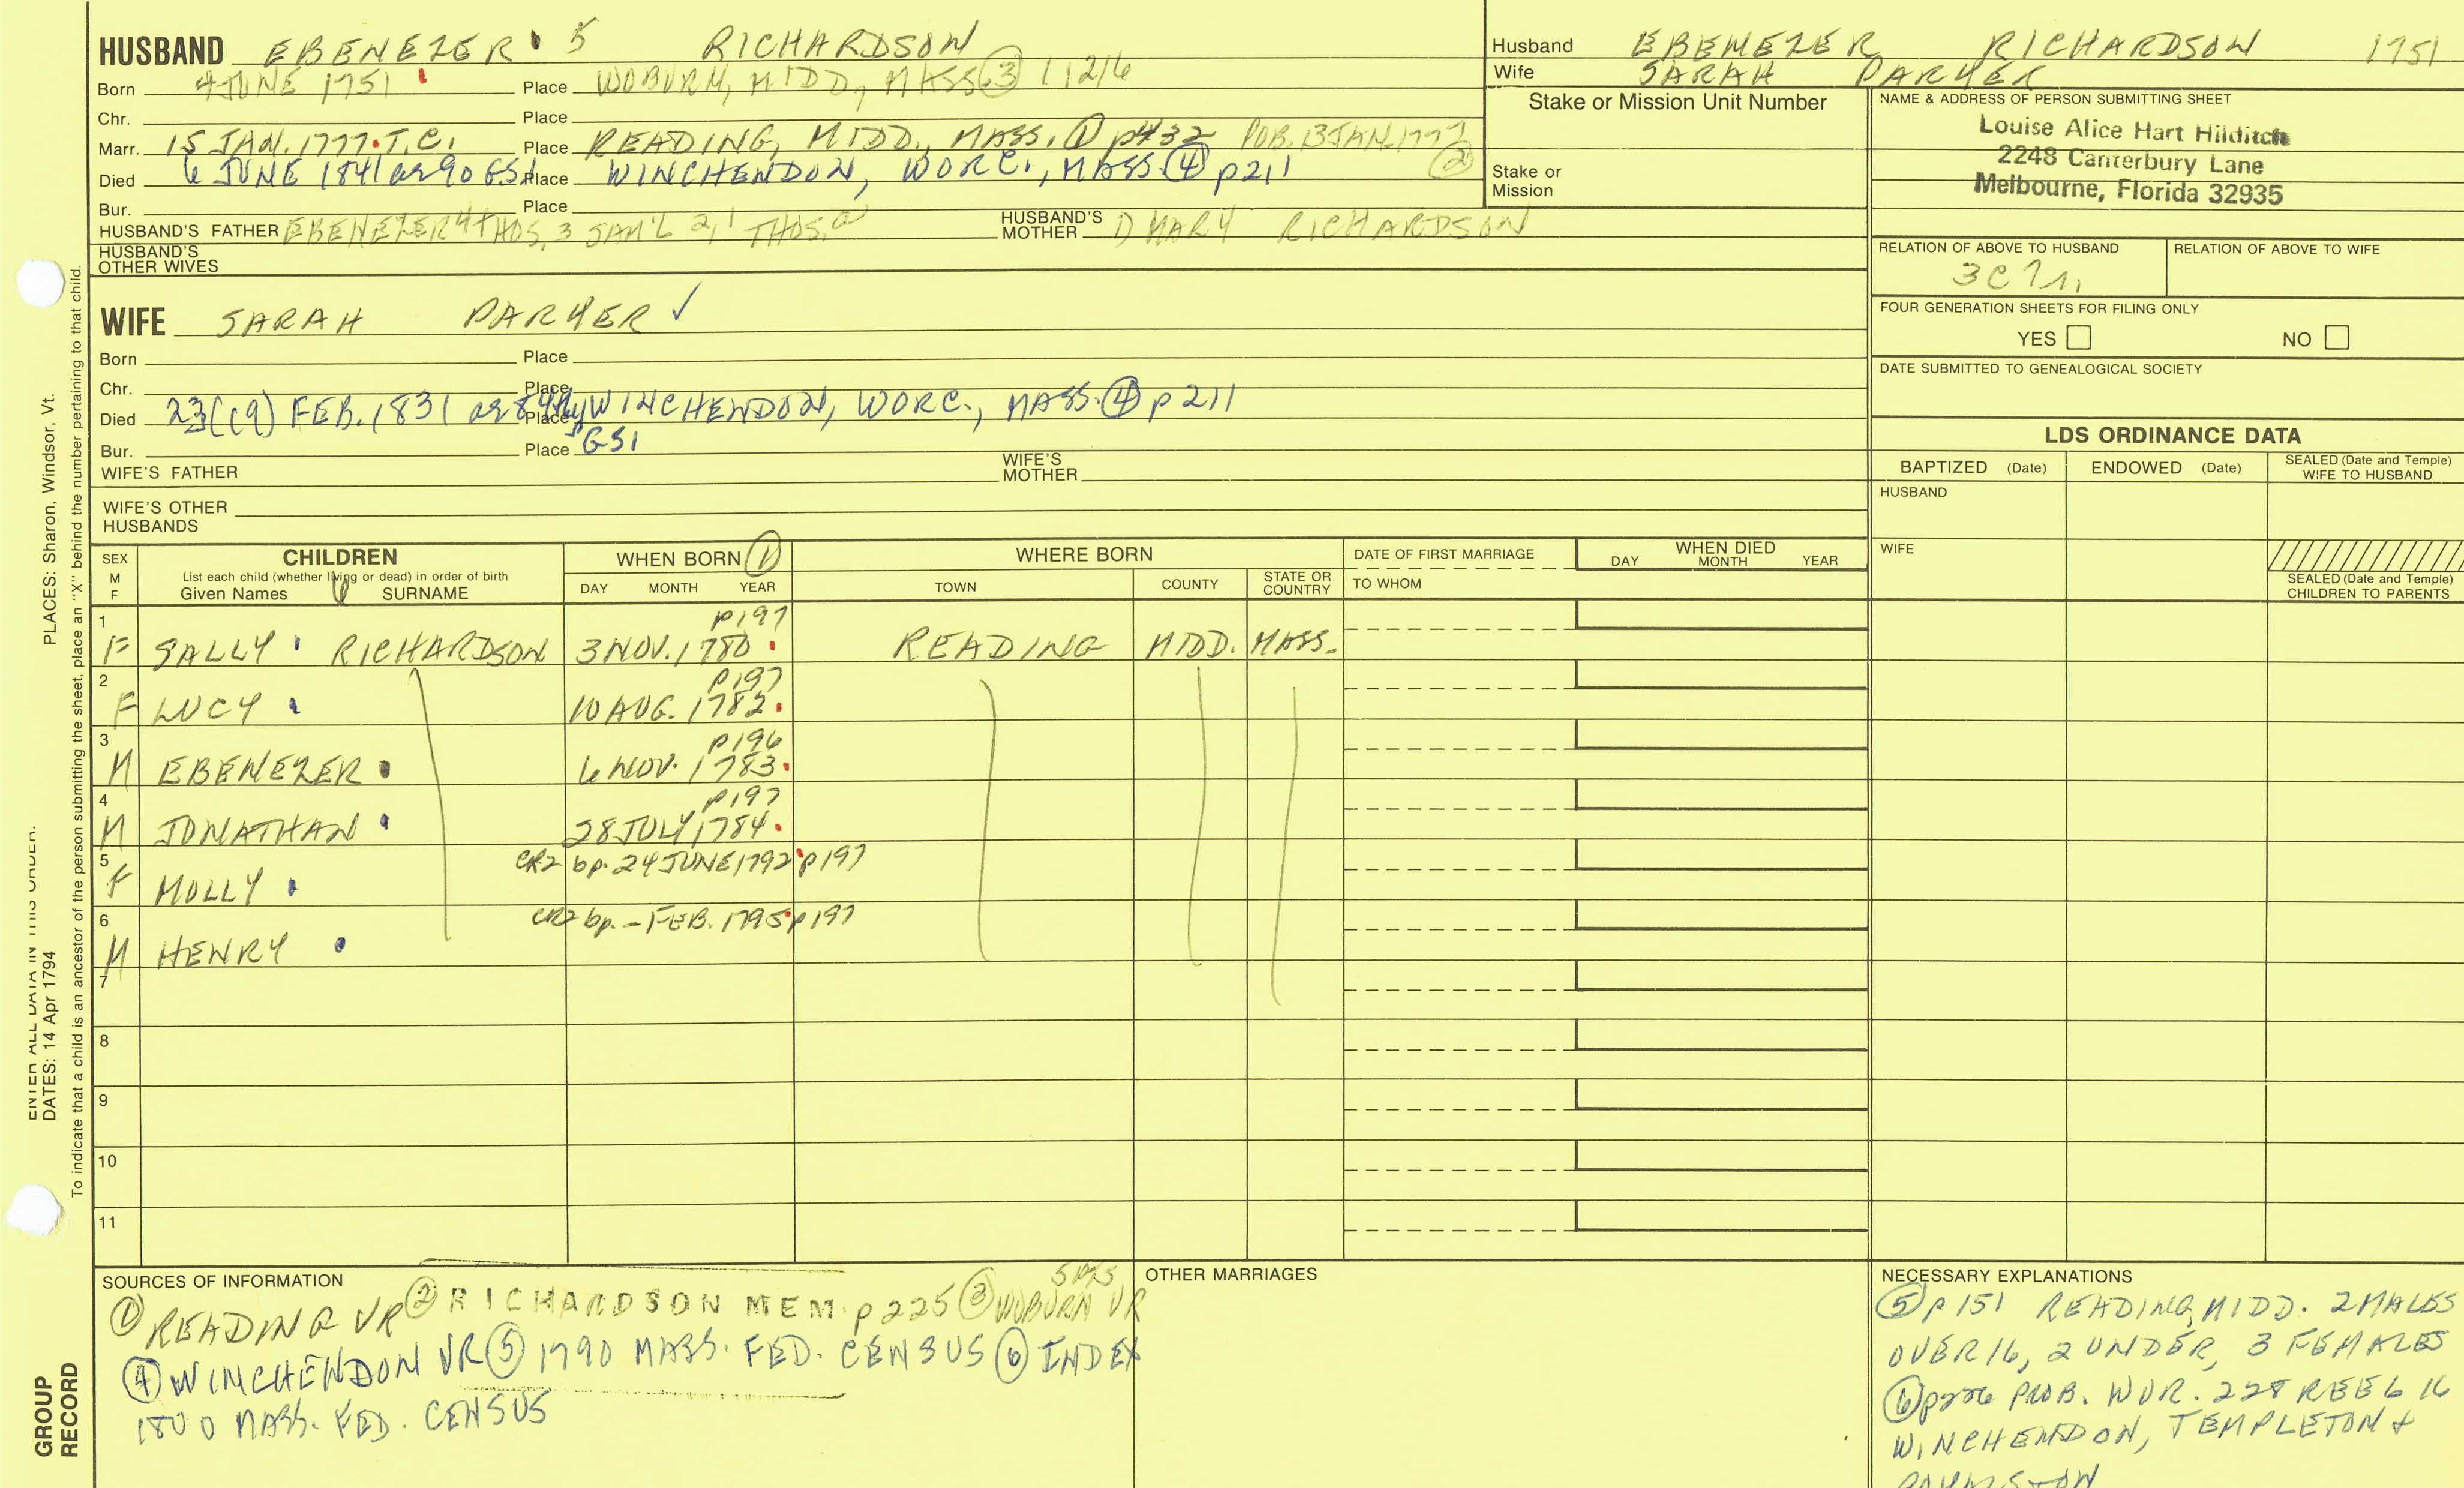 HUSBAND EBENEZER 5 RICHARDSON
Born 4 JUNE 1751 Place WOBURN, MIDD, MASS. ③ 1 126
Chr. Place
Marr. 15 JAN. 1777. T.C. Place READING, MIDD., MASS. ① p432 PUB. 13 JAN. 1777 ②
Died 6 JUNE 1841 ae 90 GS1 Place WINCHENDON, WORC., MASS. ④ p211
Bur. Place
HUSBAND'S FATHER EBENEZER 4 THOS. 3 SAM'L 2, 1 THOS. HUSBAND'S MOTHER MARY RICHARDSON
HUSBAND'S OTHER WIVES
WIFE SARAH PARKER ✓
Born Place
Chr. Place
Died 23 (19) FEB. 1831 Place WINCHENDON, WORC., MASS. ④ p 211
Bur. Place GS1
WIFE'S FATHER WIFE'S MOTHER
WIFE'S OTHER HUSBANDS
Husband EBENEZER RICHARDSON 1751
Wife SARAH PARKER
Stake or Mission Unit Number
Stake or Mission
NAME & ADDRESS OF PERSON SUBMITTING SHEET
Louise Alice Hart Hilditch
2248 Canterbury Lane
Melbourne, Florida 32935
RELATION OF ABOVE TO HUSBAND RELATION OF ABOVE TO WIFE
3C
FOUR GENERATION SHEETS FOR FILING ONLY
YES NO
DATE SUBMITTED TO GENEALOGICAL SOCIETY
LDS ORDINANCE DATA
BAPTIZED (Date) ENDOWED (Date) SEALED (Date and Temple) WIFE TO HUSBAND
HUSBAND
WIFE
SEALED (Date and Temple) CHILDREN TO PARENTS
SEX M F
CHILDREN
List each child (whether living or dead) in order of birth
Given Names SURNAME
WHEN BORN ①
DAY MONTH YEAR
WHERE BORN
TOWN COUNTY STATE OR COUNTRY
DATE OF FIRST MARRIAGE
TO WHOM
WHEN DIED
DAY MONTH YEAR
1 p197
F SALLY RICHARDSON 3 NOV. 1780 READING MIDD. MASS.
2 p197
F LUCY 10 AUG. 1782
3 p196
M EBENEZER 6 NOV. 1783
4 p197
M JONATHAN 28 JULY 1784
5 CR2 bp. 24 JUNE 1792 p197
F MOLLY
6 CR2 bp. - FEB. 1795 p197
M HENRY
7
8
9
10
11
SOURCES OF INFORMATION
① READING VR ② RICHARDSON MEM. p 225 ③ WOBURN VR
④ WINCHENDON VR ⑤ 1790 MASS. FED. CENSUS ⑥ INDEX
1800 MASS. FED. CENSUS
OTHER MARRIAGES
NECESSARY EXPLANATIONS
⑤ p 151 READING, MIDD. 2 MALES
OVER 16, 2 UNDER, 3 FEMALES
⑥ PROB. WOR. 228 REEL 16
WINCHENDON, TEMPLETON +
PLACES: Sharon, Windsor, Vt.
DATES: 14 Apr 1794
To indicate that a child is an ancestor of the person submitting the sheet, place an "X" behind the number pertaining to that child.
GROUP
RECORD